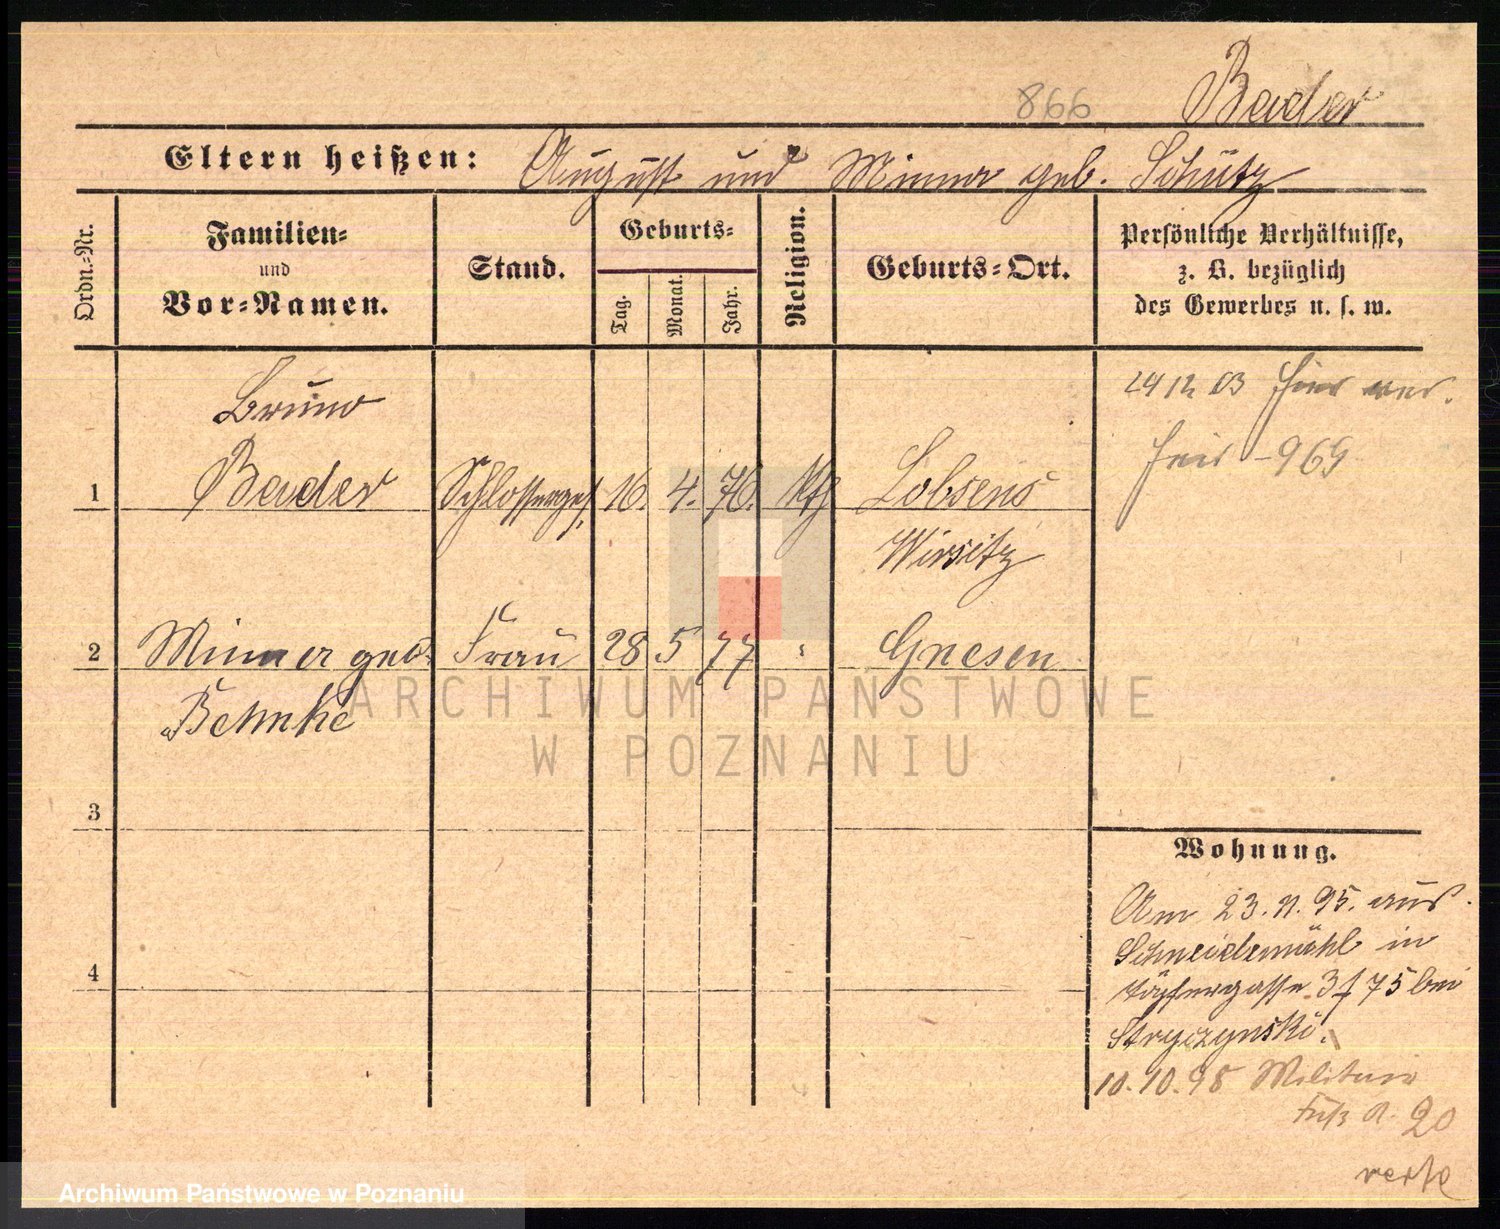 866 Bader
Eltern heißen: August und Minna geb. Schütz
Ordn.-Nr.
Familien-
und
Vor-Namen.
Stand.
Geburts-
Tag.
Monat.
Jahr.
Religion.
Geburts-Ort.
Persönliche Verhältnisse,
z. B. bezüglich
des Gewerbes u. s. w.
Bruno
1 Bader Schlosserges. 16. 4. 76. Kth Lobsens
Wirsitz
24 12 03 hier ver.
969
2 Minna geb. Frau 28 5 77 Gnesen
Behnke
ARCHIWUM PAŃSTWOWE
W POZNANIU
3
4
Wohnung.
Am 23. 11. 95. aus
Schneidemühl in
Töpfergasse 3 f 75 bei
Stryczynski.
10. 10. 98 Militair
Fuß A. 20
verte
Archiwum Państwowe w Poznaniu